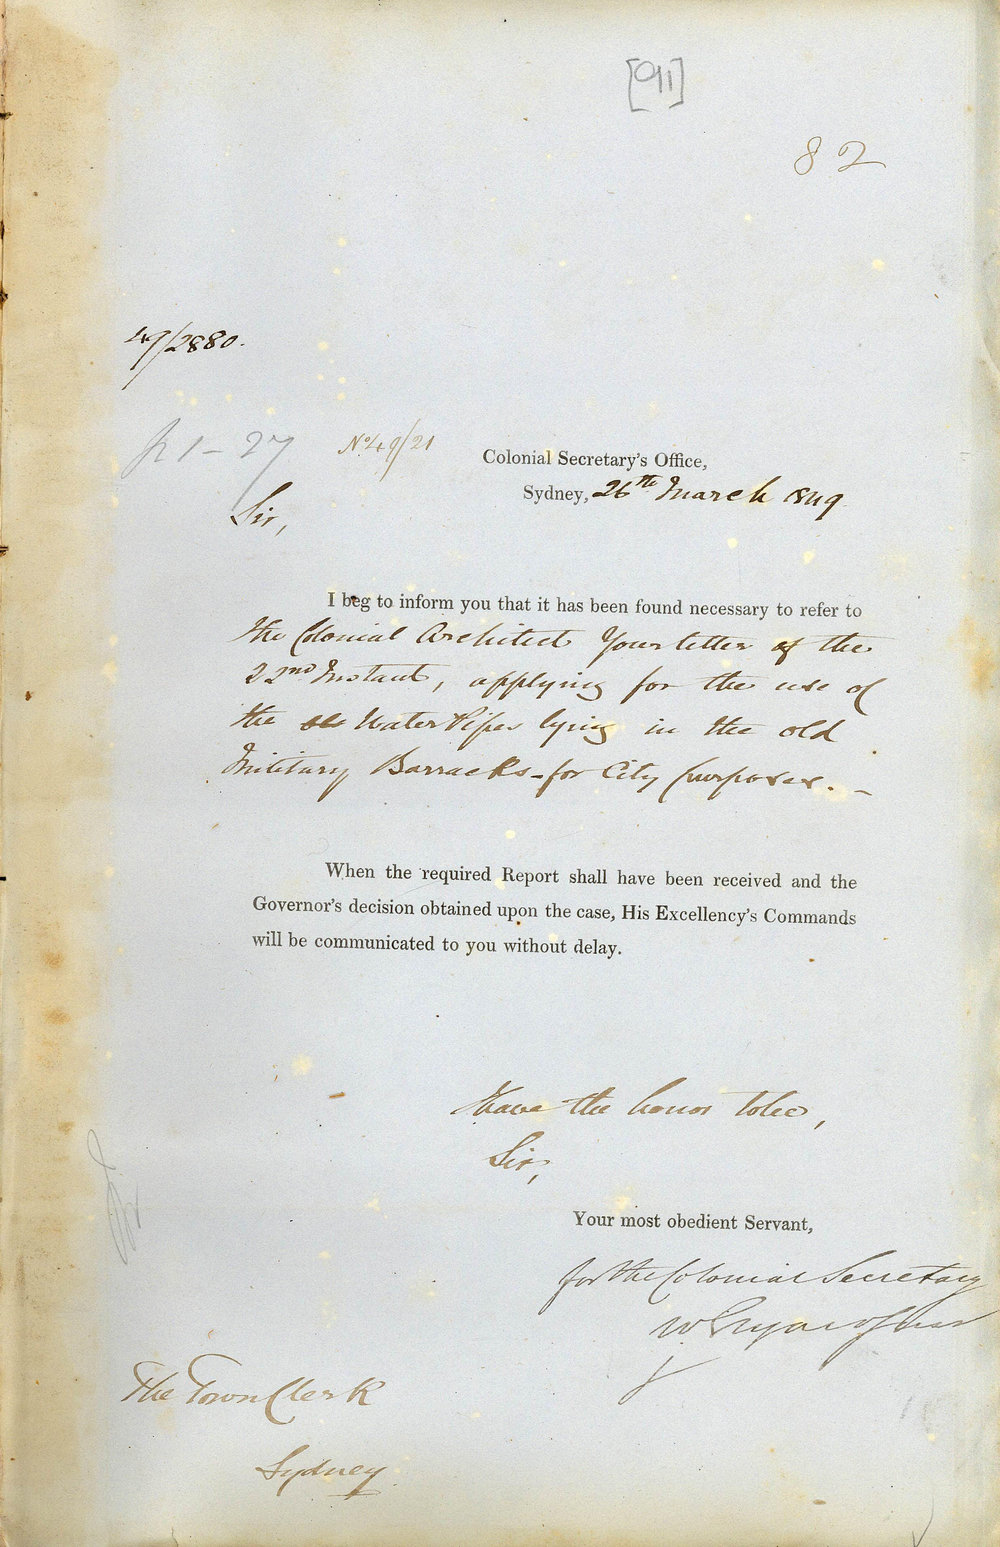 [91]
82
49/2880.
No 49/21
Colonial Secretary's Office,
Sydney, 26th March 1849
Sir,
I beg to inform you that it has been found necessary to refer to
the Colonial Architect Your letter of the
22nd Instant, applying for the use of
the Water Pipes lying in the old
Military Barracks - for City purposes. -
When the required Report shall have been received and the
Governor's decision obtained upon the case, His Excellency's Commands
will be communicated to you without delay.
Have the honor to be,
Sir,
Your most obedient Servant,
for the Colonial Secretary
The Town Clerk
Sydney